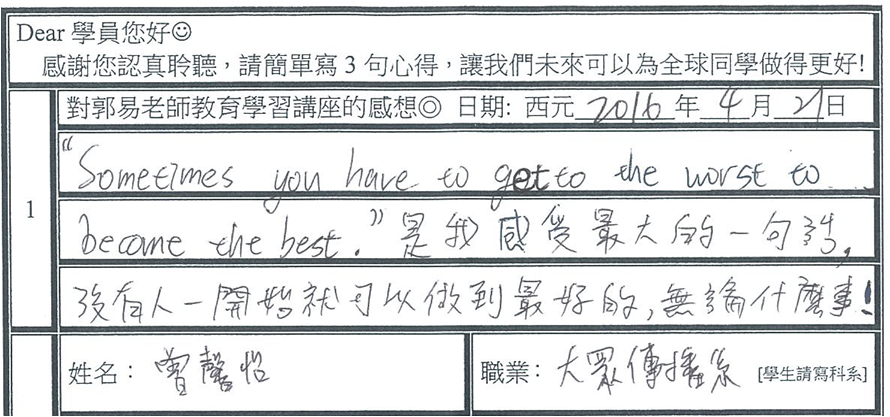 Dear 學員您好☺
感謝您認真聆聽，請簡單寫 3 句心得，讓我們未來可以為全球同學做得更好!
1
對郭易老師教育學習講座的感想◎ 日期: 西元 2016 年 4 月 21 日
“Sometimes you have to get to the worst to
become the best.”是我感受最大的一句話,
沒有人一開始就可以做到最好的,無論什麼事!
姓名： 曾馨怡 職業： 大眾傳播系 [學生請寫科系]